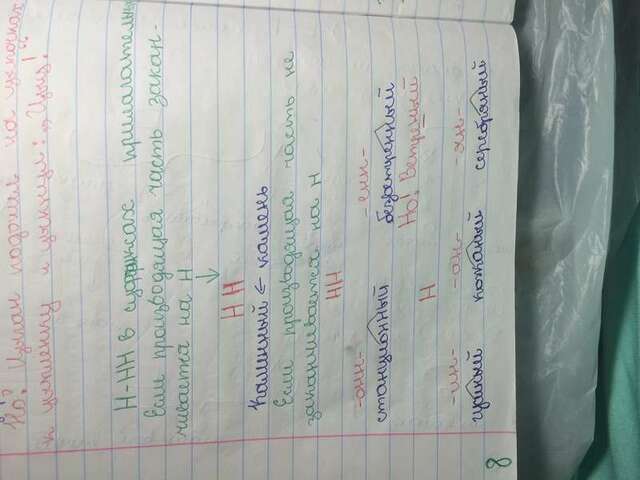 Но! Цыган подошёл на цыпочках
к цыплёнку и цыкнул: „Цыц!“
Н-НН в суффиксах прилагательных
Если производящая часть закан-
чивается на Н
↓
НН
Каменный ← камень
Если производящая часть не
заканчивается на Н
НН
-онн- -енн-
станционный безветренный
Но! Ветреный
Н
-ин- -ан- -ян-
гусиный кожаный серебряный
8